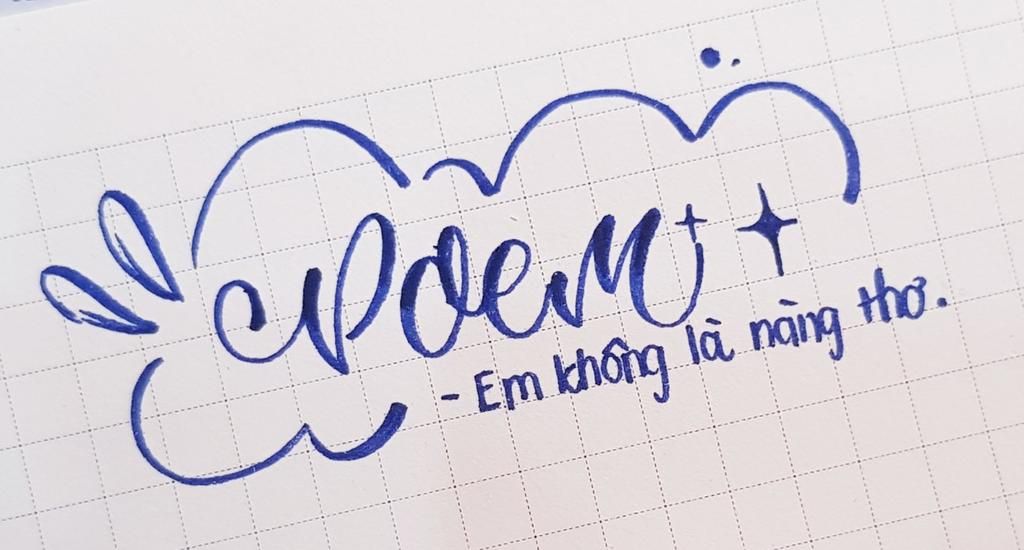 Poem
- Em không là nàng thơ.